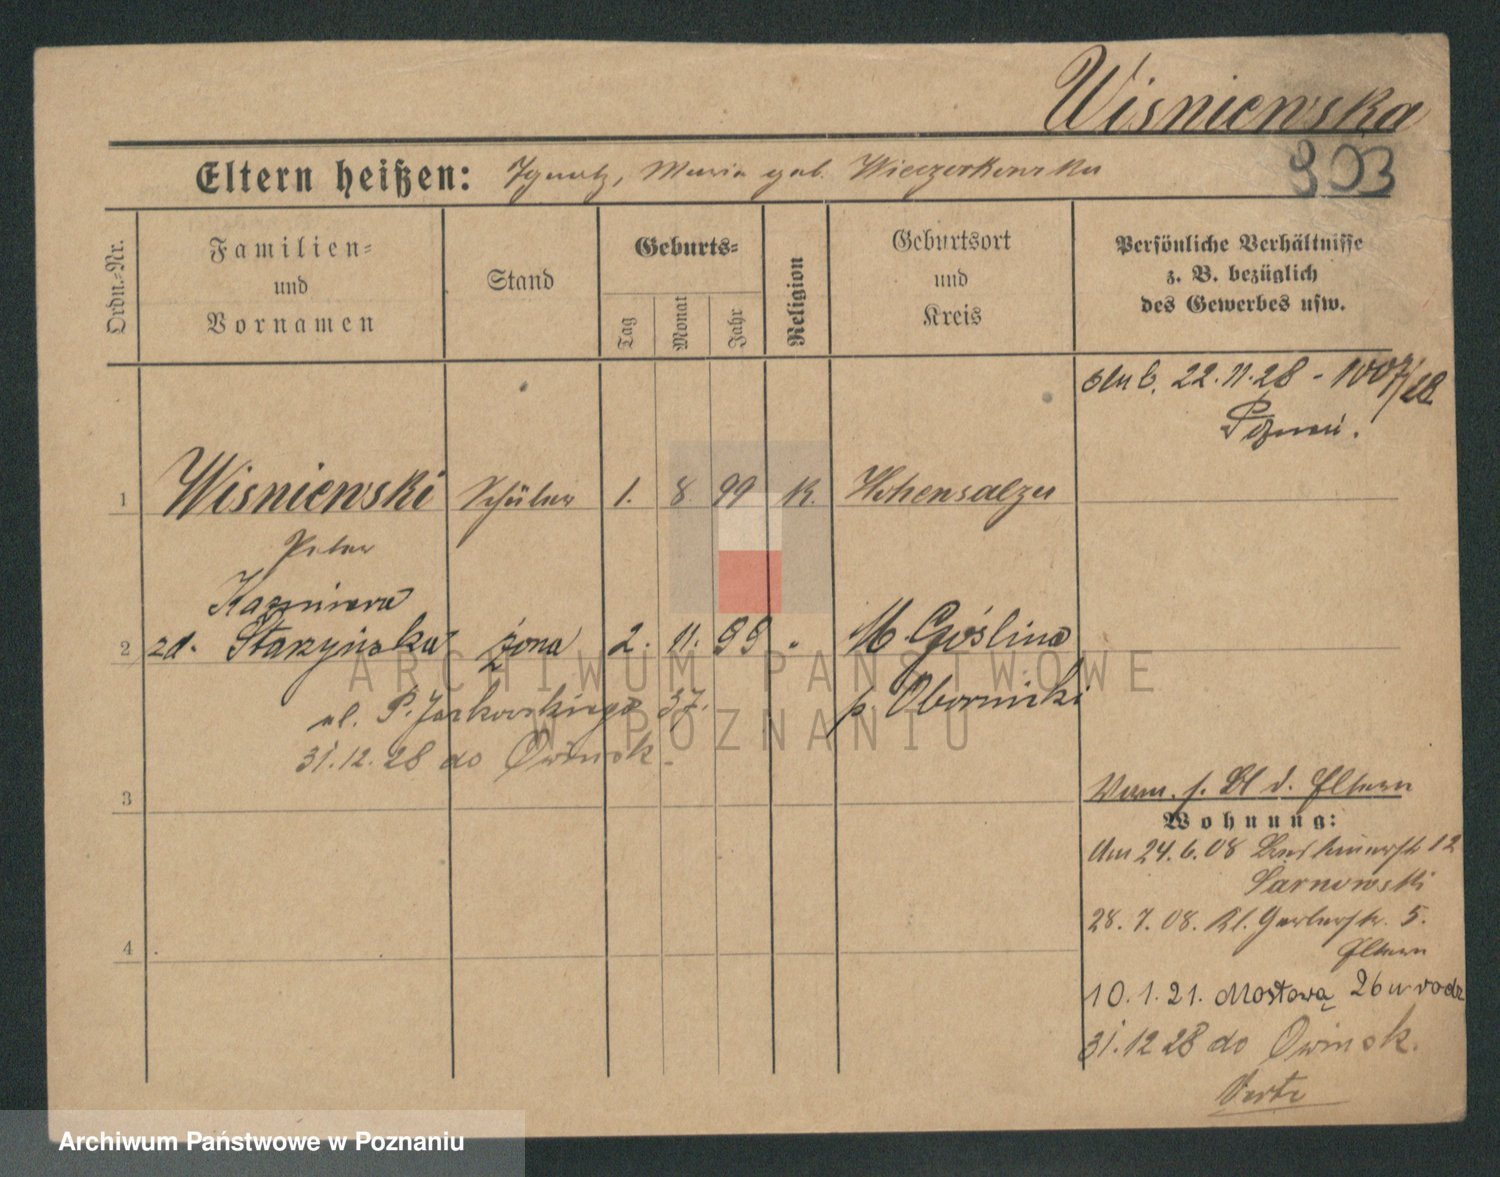 Wisniewska
Eltern heißen: Ignatz, Maria geb. Wieczorkowska
303
Ordn.-Nr.
Familien-
und
Vornamen
Stand
Geburts-
Tag
Monat
Jahr
Religion
Geburtsort
und
Kreis
Persönliche Verhältnisse
z. B. bezüglich
des Gewerbes usw.
ślub. 22.11.28 - 1007/28
Poznań.
1 Wisniewski Schüler 1. 8 99 k. Hohensalza
Peter
Kazimiera
2 zd. Starzyńska żona 2. 11. 99 " M. Goślina
p. Obornicki
ul. P. Jackowskiego 37.
31.12.28 do Owinsk.
3
Verm. s. Bl d. Eltern
Wohnung:
Um 24.6.08 12
Sarnowski
28.7.08. Kl. Gerberstr. 5.
Eltern
4
10.1.21. Mostowa 26 u rodz
31.12 28 do Owinsk.
Verte
ARCHIWUM PAŃSTWOWE
W POZNANIU
Archiwum Państwowe w Poznaniu